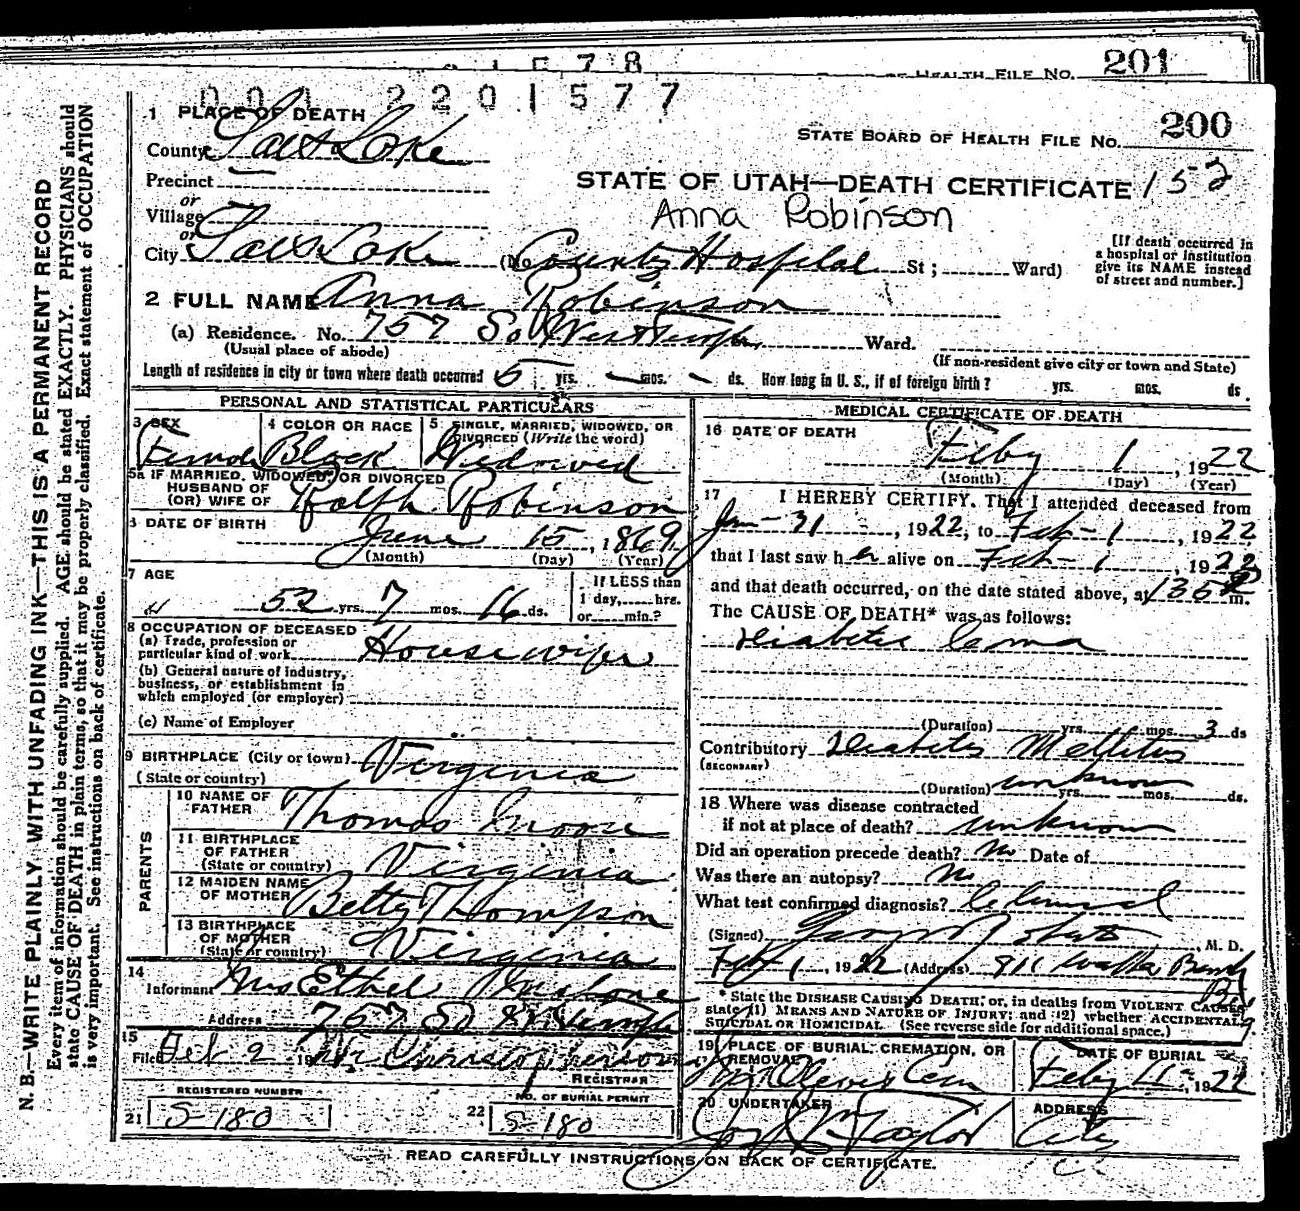 1578
OF HEALTH FILE NO. 201
001 2201577
1 PLACE OF DEATH
STATE BOARD OF HEALTH FILE NO. 200
County Salt Lake
Precinct
STATE OF UTAH—DEATH CERTIFICATE 152
or
Village
Anna Robinson
or
City Salt Lake (No. County Hospital St; Ward)
[If death occurred in
a hospital or institution
give its NAME instead
of street and number.]
2 FULL NAME Anna Robinson
(a) Residence. No. 757 So West Temple Ward.
(Usual place of abode)
(If non-resident give city or town and State)
Length of residence in city or town where death occurred 5 yrs. — mos. — ds. How long in U. S., if of foreign birth? yrs. mos. ds.
PERSONAL AND STATISTICAL PARTICULARS
3 SEX
Female
4 COLOR OR RACE
Black
5 SINGLE, MARRIED, WIDOWED, OR
DIVORCED (Write the word)
Widowed
5a IF MARRIED, WIDOWED, OR DIVORCED
HUSBAND OF
(OR) WIFE OF Ralph Robinson
6 DATE OF BIRTH
June 15, 1869
(Month) (Day) (Year)
7 AGE
52 yrs. 7 mos. 16 ds.
If LESS than
1 day, hrs.
or min.?
8 OCCUPATION OF DECEASED
(a) Trade, profession or
particular kind of work Housewife
(b) General nature of industry,
business, or establishment in
which employed (or employer)
(c) Name of Employer
9 BIRTHPLACE (City or town) Virginia
(State or country)
PARENTS
10 NAME OF
FATHER Thomas Moore
11 BIRTHPLACE
OF FATHER
(State or country) Virginia
12 MAIDEN NAME
OF MOTHER Betty Thompson
13 BIRTHPLACE
OF MOTHER
(State or country) Virginia
14
Informant Mrs Ethel
Address 757 So W Temple
15
Filed Feb 2 19 Christopherson
REGISTRAR
REGISTERED NUMBER
21 S-180
NO. OF BURIAL PERMIT
22 S-180
MEDICAL CERTIFICATE OF DEATH
16 DATE OF DEATH
Feby 1, 1922
(Month) (Day) (Year)
17 I HEREBY CERTIFY, That I attended deceased from
Jan-31-, 1922, to Feb-1, 1922
that I last saw her alive on Feb-1, 1922
and that death occurred, on the date stated above, at 135 m.
The CAUSE OF DEATH* was as follows:
Diabetic Coma
(Duration) yrs. mos. 3 ds
Contributory Diabetes Mellitus
(SECONDARY)
(Duration) unknown yrs. mos. ds.
18 Where was disease contracted
if not at place of death? unknown
Did an operation precede death? No Date of
Was there an autopsy? No
What test confirmed diagnosis? Chemical
(Signed) Roberts, M. D.
Feb 1, 1922 (Address) 911 Walker Bank
Bldg.
* State the DISEASE CAUSING DEATH, or, in deaths from VIOLENT CAUSES
state (1) MEANS AND NATURE OF INJURY; and (2) whether ACCIDENTAL,
SUICIDAL OR HOMICIDAL. (See reverse side for additional space.)
19 PLACE OF BURIAL, CREMATION, OR
REMOVAL
Mt Olevis Cem
DATE OF BURIAL
Feby 4, 1922
20 UNDERTAKER
Taylor
ADDRESS
City
READ CAREFULLY INSTRUCTIONS ON BACK OF CERTIFICATE.
N. B.—WRITE PLAINLY WITH UNFADING INK—THIS IS A PERMANENT RECORD
Every item of information should be carefully supplied. AGE should be stated EXACTLY. PHYSICIANS should
state CAUSE OF DEATH in plain terms, so that it may be properly classified. Exact statement of OCCUPATION
is very important. See instructions on back of certificate.